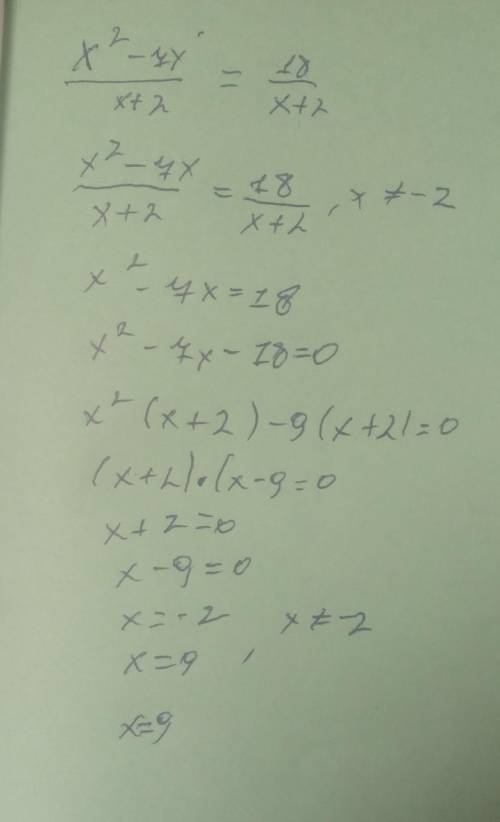 x² - 7x / x+2 = 18 / x+2
x² - 7x / x+2 = 18 / x+2 , x ≠ -2
x² - 7x = 18
x² - 7x - 18 = 0
x² (x+2) - 9(x+2) = 0
(x+2)•(x-9 = 0
x+2=0
x-9=0
x=-2 x≠-2
x=9 ,
x=9